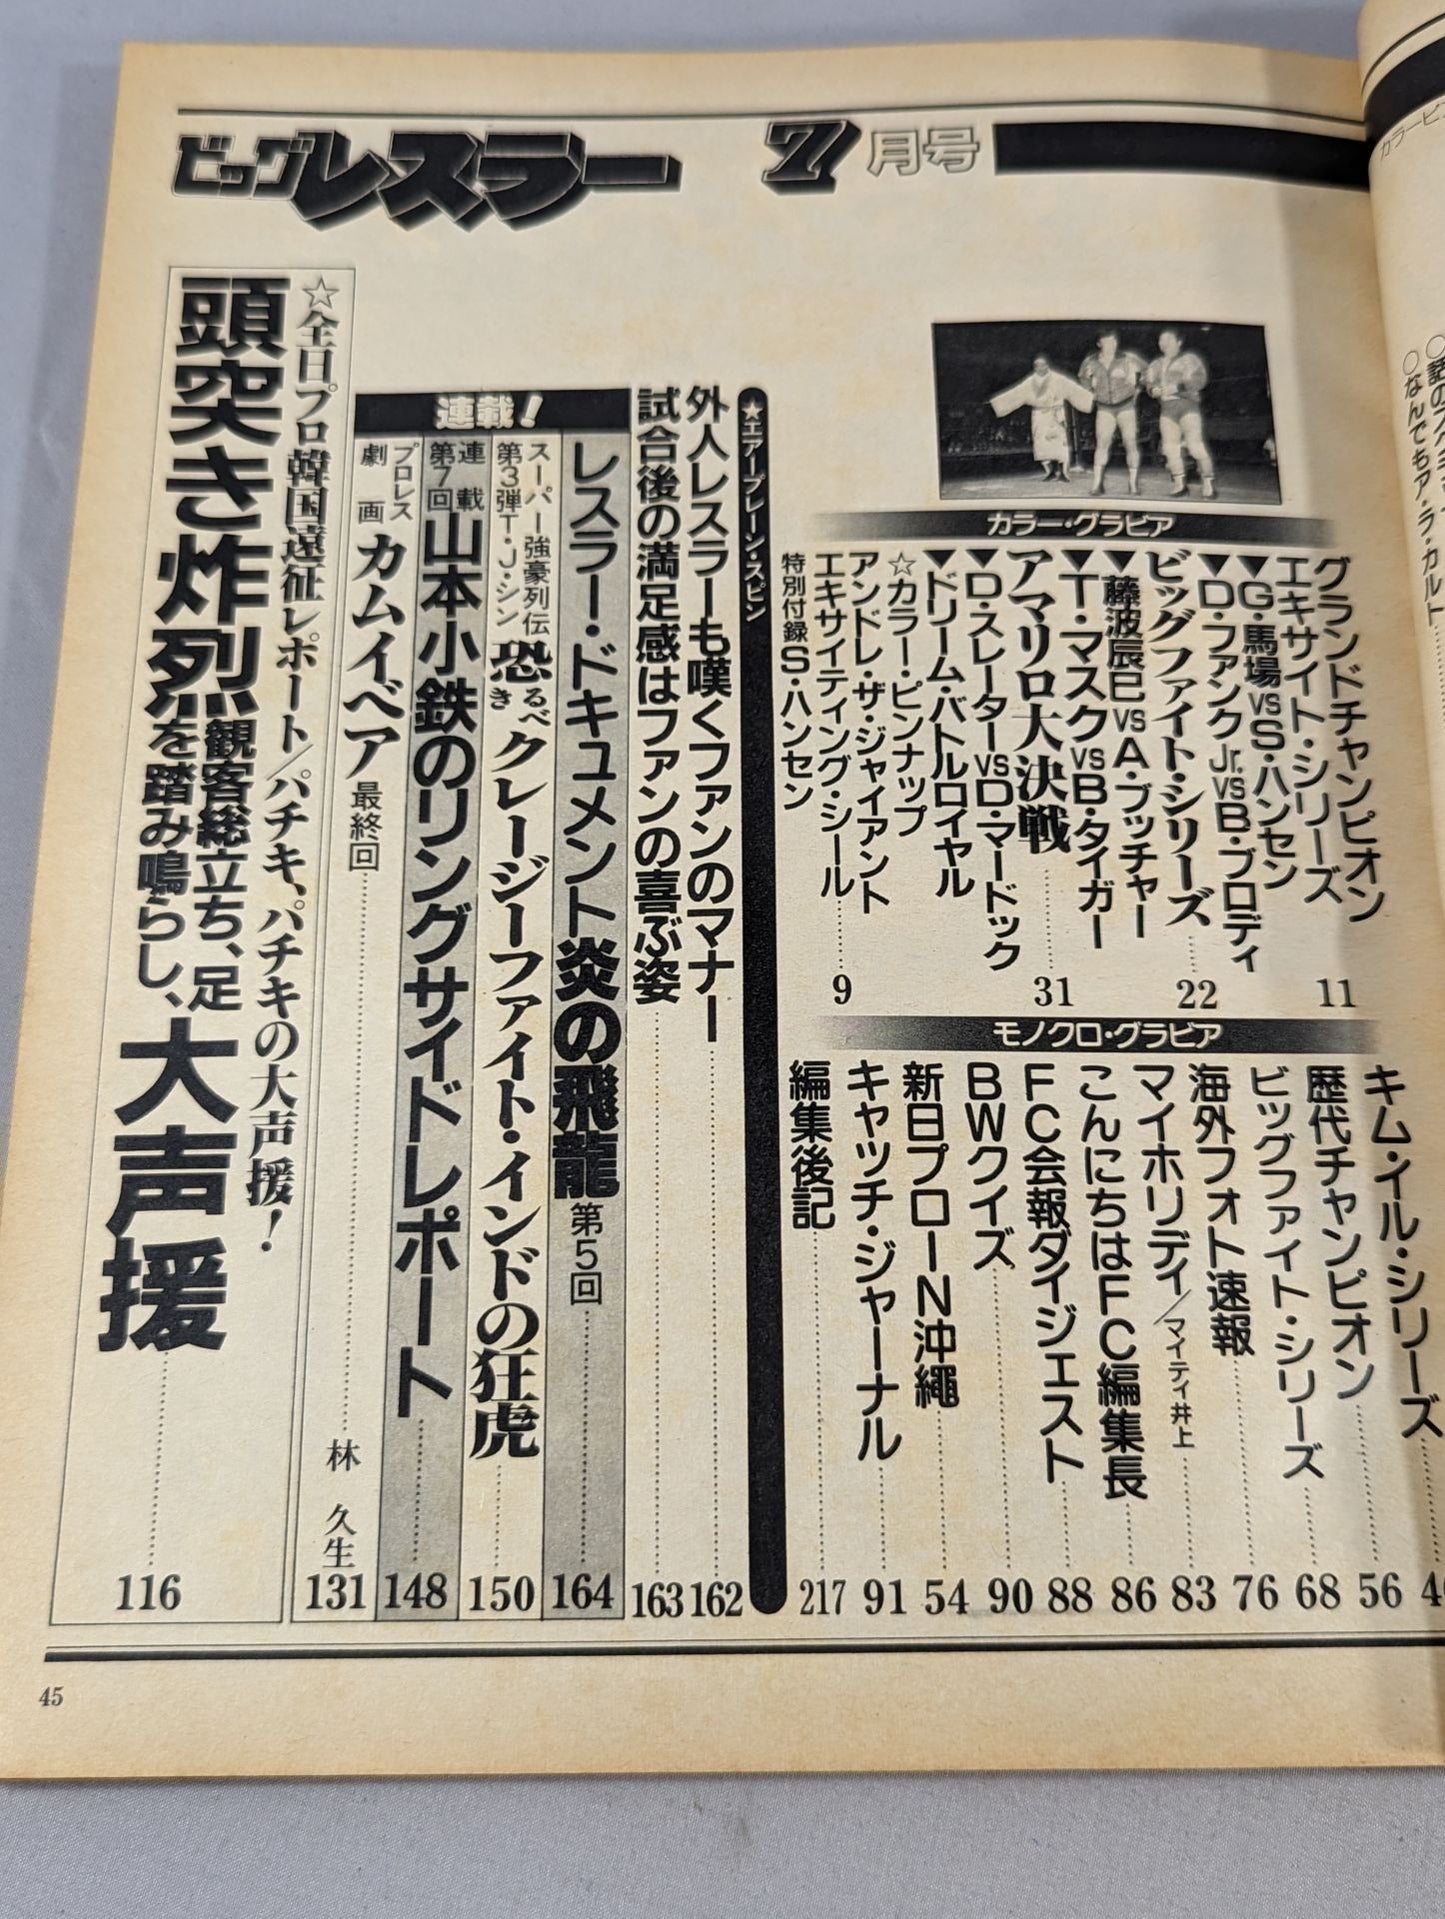 ビッグレスラー 7月号
カラー・グラビア
グランドチャンピオン
エキサイト・シリーズ……11
▼G・馬場vsS・ハンセン
▼D・ファンクJr.vsB・ブロディ
ビッグファイト・シリーズ……22
▼藤波辰巳vsA・ブッチャー
▼T・マスクvsB・タイガー
アマリロ大決戦……31
▼D・スレーターvsD・マードック
▼ドリーム・バトルロイヤル
☆カラー・ピンナップ
アンドレ・ザ・ジャイアント
エキサイティング・シール……9
特別付録S・ハンセン
モノクロ・グラビア
キム・イル・シリーズ……
歴代チャンピオン……56
ビッグファイト・シリーズ……68
海外フォト速報……76
マイホリディ/マイティ井上……83
こんにちはFC編集長……86
FC会報ダイジェスト……88
BWクイズ……90
新日プローIN沖縄……54
キャッチ・ジャーナル……91
編集後記……217
★エアープレーン・スピン
外人レスラーも嘆くファンのマナー……162
試合後の満足感はファンの喜ぶ姿……163
連載!
レスラー・ドキュメント炎の飛龍 第5回……164
スーパー強豪列伝
第3弾T・J・シン 恐るべきクレージーファイト・インドの狂虎……150
連載第7回 山本小鉄のリングサイドレポート……148
プロレス劇画 カムイベア 最終回……林 久生 131
☆全日プロ韓国遠征レポート/パチキ、パチキの大声援!
頭突き炸烈 観客総立ち、足を踏み鳴らし、大声援……116
45
○なんでもア・ラ・カルト……